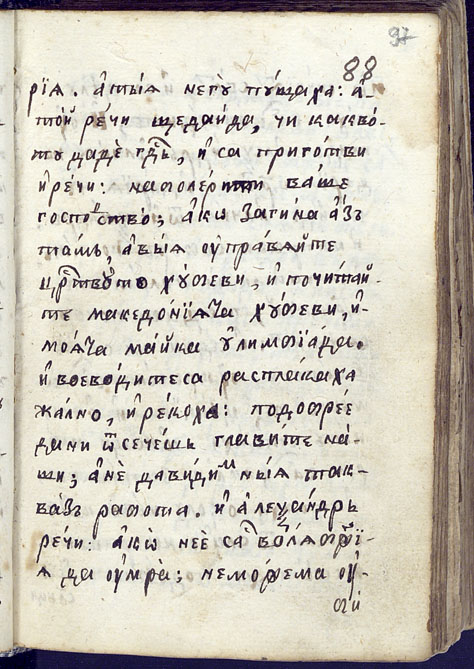 88
рїѧ . а҆ тыѧ негꙋ пꙋщаха : а҆-
той речи ще да иде , чи какво-
мꙋ даде гд҇ь , и҆ са приготви
и҆ речи : на полерити ваше
господство ; а҆ко загина а҆зъ
тамъ , а выѧ оуправѧйте
цр҇твото хꙋбеви , и҆ почитай-
те македонїѧта хꙋбеви , и҆
моѧта майка ѹ҆лимбїада .
и҆ воеводите са расплакаха
жално , и҆ рекоха : по добре е
да ни ѿсечешь главите на-
ши ; а҆ не да видим ныѧ так-
ваѧ работа . и҆ а҆леѯандрь
речи : а҆кѡ не е са
ѧ да оумра ; неможема оу-